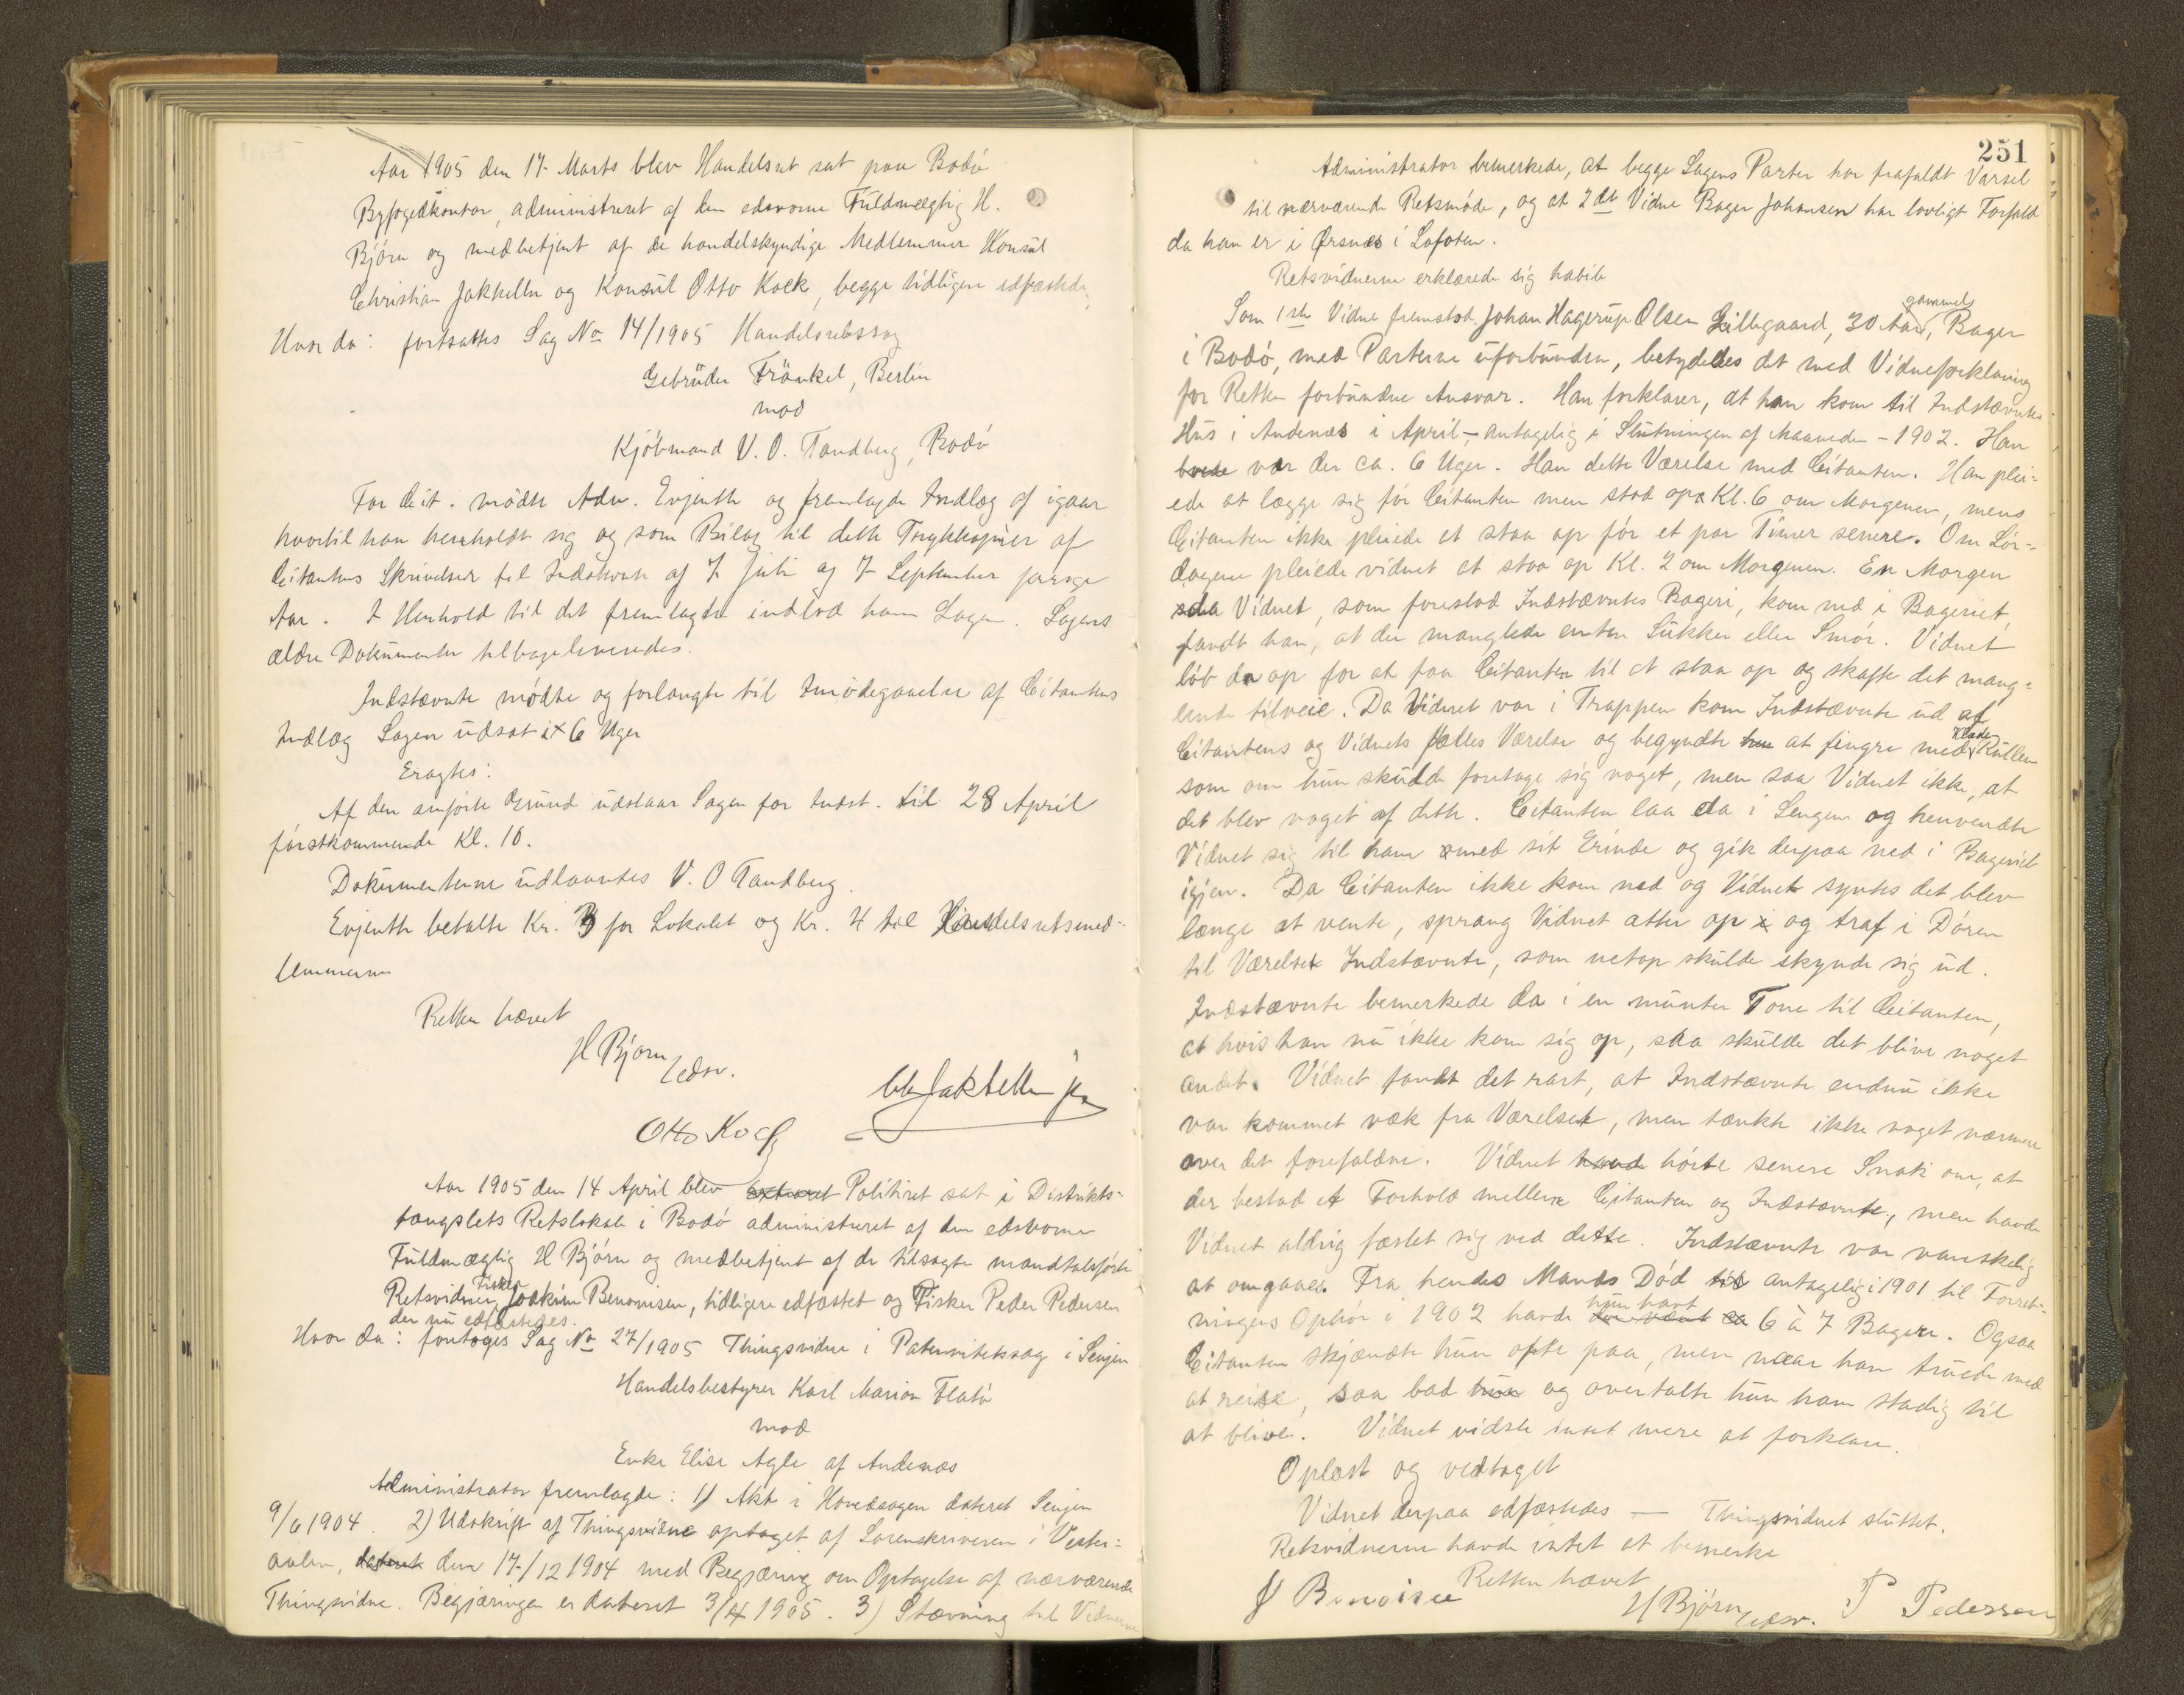 Aar 1905 den 17. Marts blev Handelsret sat paa Bodö
Byfogedkontor, administreret af den edsvorne Fuldmægtig H.
Bjørn og medbetjent af de handelskyndige Medlemmer Konsul
Christian Jakhelln og Konsul Otto Koch, begge tidligere edfæstede,
Hvor da: fortsattes Sag No 14/1905 Handelsretssag
Gebrüder Fränkel, Berlin
mod
Kjøbmand V. O. Tandberg, Bodö
For Cit. mødte Adv. Evjenth og fremlagde Indlæg af igaar
hvortil han henholdt sig og som Bilag til dette Trykkopier af
Citantens Skrivelser til Indstevnte af 7 Juli og 7 September forrige
Aar. I Henhold til det fremlagte indlod han Sagen. Sagens
ældre Dokumenter tilbageleveredes.
Indstævnte mødte og forlangte til Imødegaaelse af Citantens
Indlæg Sagen udsat i 6 Uger
Eragtes:
Af den anførte Grund udstaar Sagen for Indst. til 28 April
førstkommende Kl. 10.
Dokumenterne udlaantes V. O Tandberg.
Evjenth betalte Kr. 3 for Lokalet og Kr. 4 til Handelsretsmed-
lemmerne
Retten hævet
H Bjørn
edsv.
Chr Jakhelln jr
Otto Koch
Aar 1905 den 14 April blev extraret Politiret sat i Distrikts-
fængslets Retslokale i Bodö administreret af den edsvorne
Fuldmægtig H Bjørn og medbetjent af de tilsagte mandtalsførte
Retsvidner, Fisker Joakim Benonisen, tidligere edfæstet og Fisker Peder Pedersen
der nu edfæstedes.
Hvor da: foretoges Sag No 27/1905 Thingsvidne i Paternitetssag i Senjen
Handelsbestyrer Karl Marion Flatö
mod
Enke Elise Agle af Andenæs
Administrator fremlagde: 1) Akt i Hovedsagen dateret Senjen
9/6 1904. 2) Udskrift af Thingsvidne optaget af Sorenskriveren i Vester-
aalen, dateret den 17/12 1904 med Begjæring om Optagelse af nærværende
Thingsvidne. Begjæringen er dateret 3/4 1905. 3) Stævning til Vidnerne
251
Administrator bemerkede, at begge Sagens Parter har frafaldt Varsel
til nærværende Retsmøde, og at 2det Vidne Bager Johansen har lovligt Forfald
da han er i Ørsnes i Lofoten.
Retsvidnerne erklærede sig habile
Som 1ste Vidne fremstod Johan Hagerup Olsen Lillegaard, 30 Aar gammel, Bager
i Bodö, med Parterne uforbunden, betydedes det med Vidneforklaring
for Retten forbundne Ansvar. Han forklarer, at han kom til Indstævntes
Hus i Andenes i April – antagelig i Slutningen af Maaneden – 1902. Han
boede var der ca. 6 Uger. Han delte Værelse med Citanten. Han plei-
ede at lægge sig før Citanten men stod op Kl. 6 om Morgenen, mens
Citanten ikke pleiede at staa op før et par Timer senere. Om Lør-
dagene pleiede vidnet at staa op Kl. 2 om Morgenen. En Morgen
da Vidnet, som forestod Indstævntes Bageri, kom ned i Bageriet,
fandt han, at der manglede enten Sukker eller Smør. Vidnet
løb da op for at faa Citanten til at staa op og skaffe det mang-
lende tilveie. Da Vidnet var i Trappen kom Indstævnte ud af
Citantens og Vidnets fælles Værelse og begyndte hun at fingre med Klæde Rullen
som om hun skulde foretage sig noget, men saa Vidnet ikke, at
det blev noget af dette. Citanten laa da i Sengen og henvendte
Vidnet sig til ham med sit Erinde og gik derpaa ned i Bageriet
igjen. Da Citanten ikke kom ned og Vidnet syntes det blev
længe at vente, sprang Vidnet atter op i og traf i Døren
til Værelset Indstævnte, som netop skulde skynde sig ud.
Indstævnte bemerkede da i en munter Tone til Citanten,
at hvis han nu ikke kom sig op, saa skulde det blive noget
andet. Vidnet fandt det rart, at Indstævnte endnu ikke
var kommet væk fra Værelset, men tænkte ikke noget nærmere
over det forefaldne. Vidnet havde hørte senere Snak om, at
der bestod et Forhold mellem Citanten og Indstævnte, men havde
Vidnet aldrig fæstet sig ved dette. Indstævnte var vanskelig
at omgaaes. Fra hendes Mands Død til antagelig i 1901 til Forret-
ningens Ophør i 1902 havde hun havt der været ca 6 à 7 Bagere. Ogsaa
Citanten skjændte hun ofte paa, men naar han truede med
at reise, saa bad hun og overtalte hun ham stadig til
at blive. Vidnet vidste intet mere at forklare.
Oplæst og vedtaget
Vidnet derpaa edfæstedes — Thingsvidnet sluttet.
Retsvidnerne havde intet at bemerke
Retten hævet
J Benoisen
H Bjørn
edsv.
P Pederssen